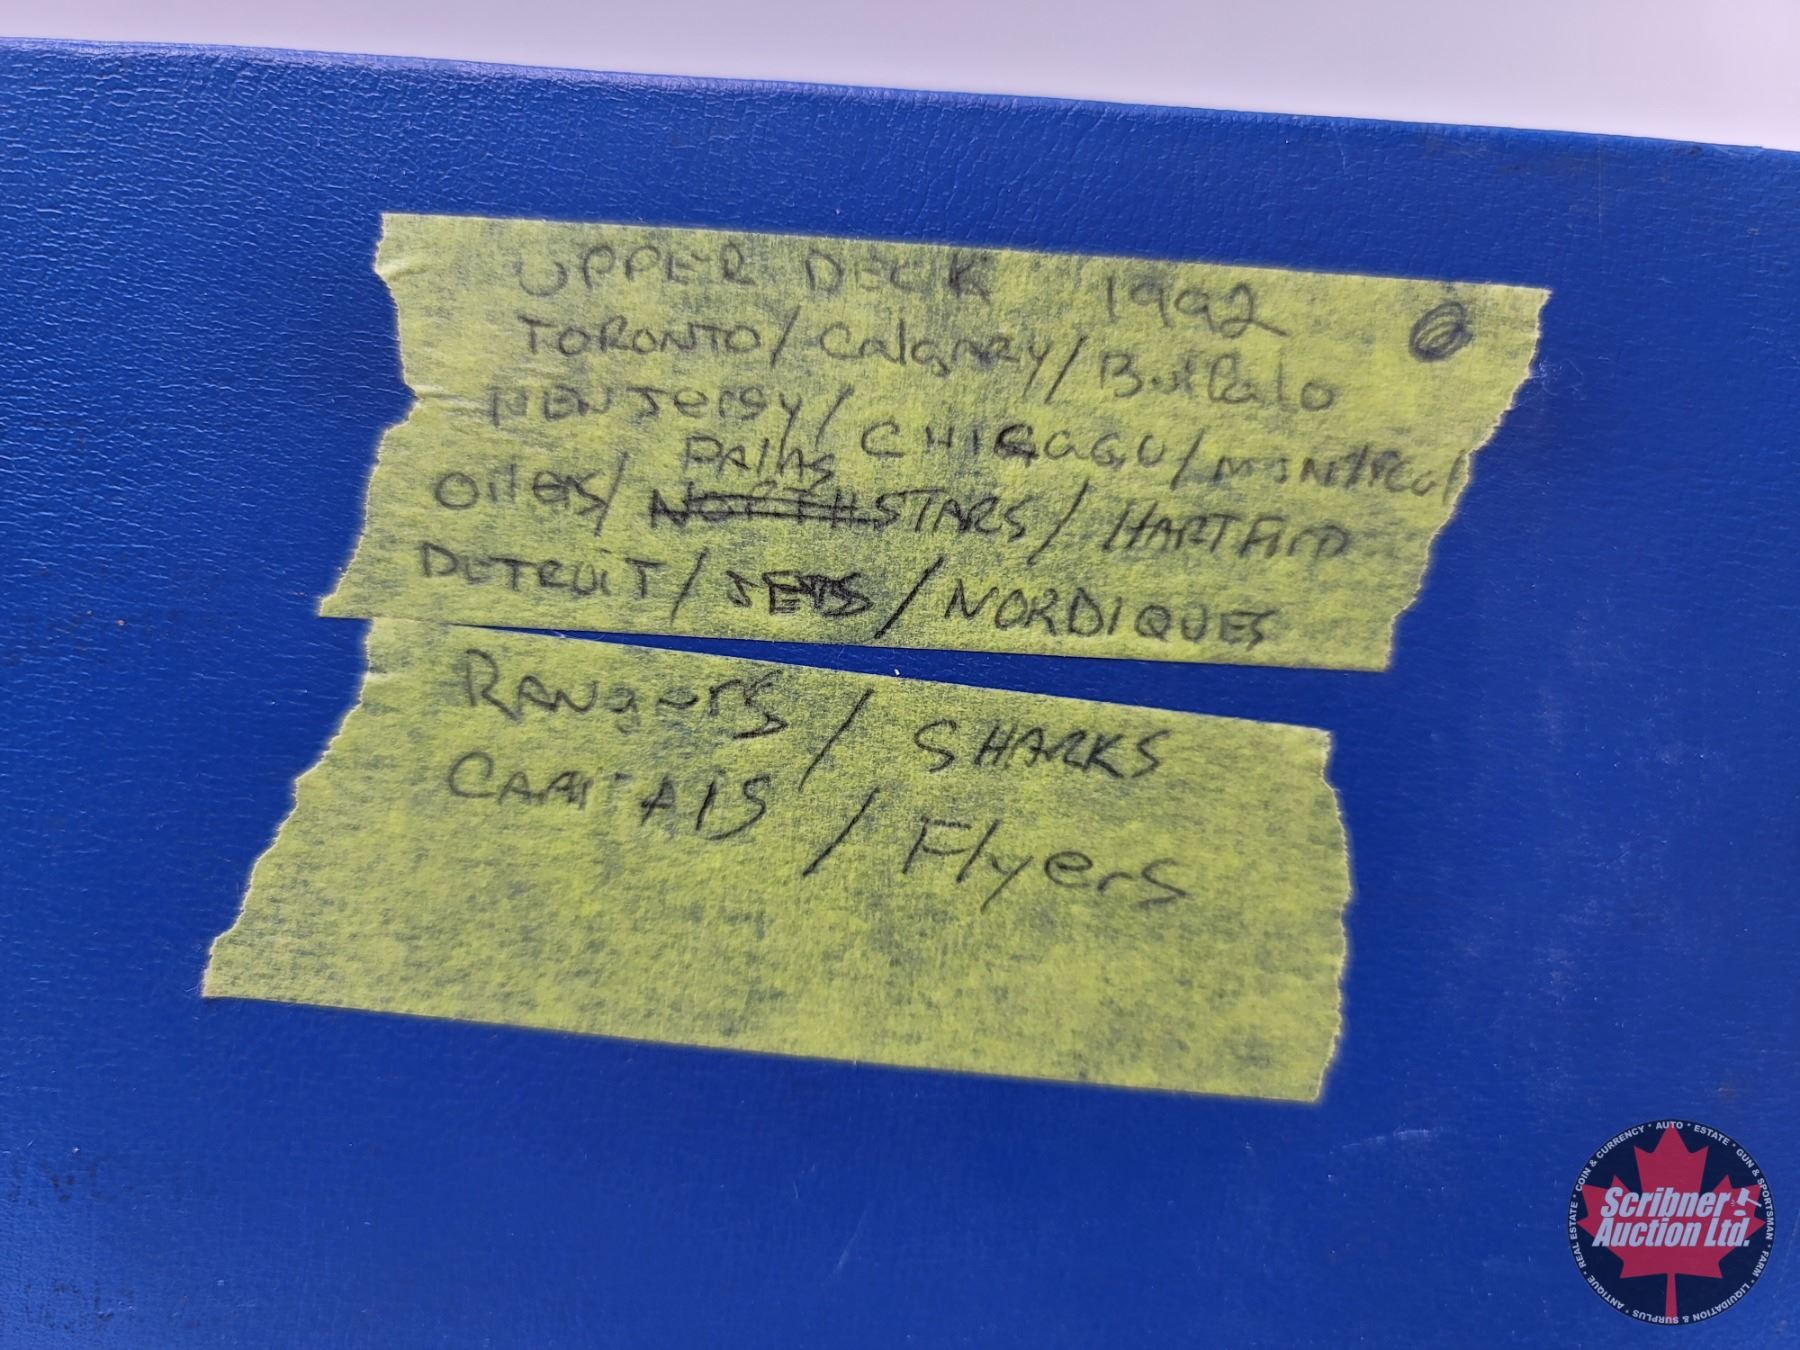 UPPER DECK 1992
TORONTO / Calgary / Buffalo
NEW Jersey / CHICAGO / MONTREAL
Oilers / Dallas NORTH STARS / HARTFORD
DETROIT / JETS / NORDIQUES
RANgers / SHARKS
CAPITAlS / Flyers
COIN & CURRENCY * AUTO * ESTATE * GUN & SPORTSMAN * FARM * LIQUIDATION & SURPLUS * ANTIQUE * REAL ESTATE *
Scribner
Auction Ltd.